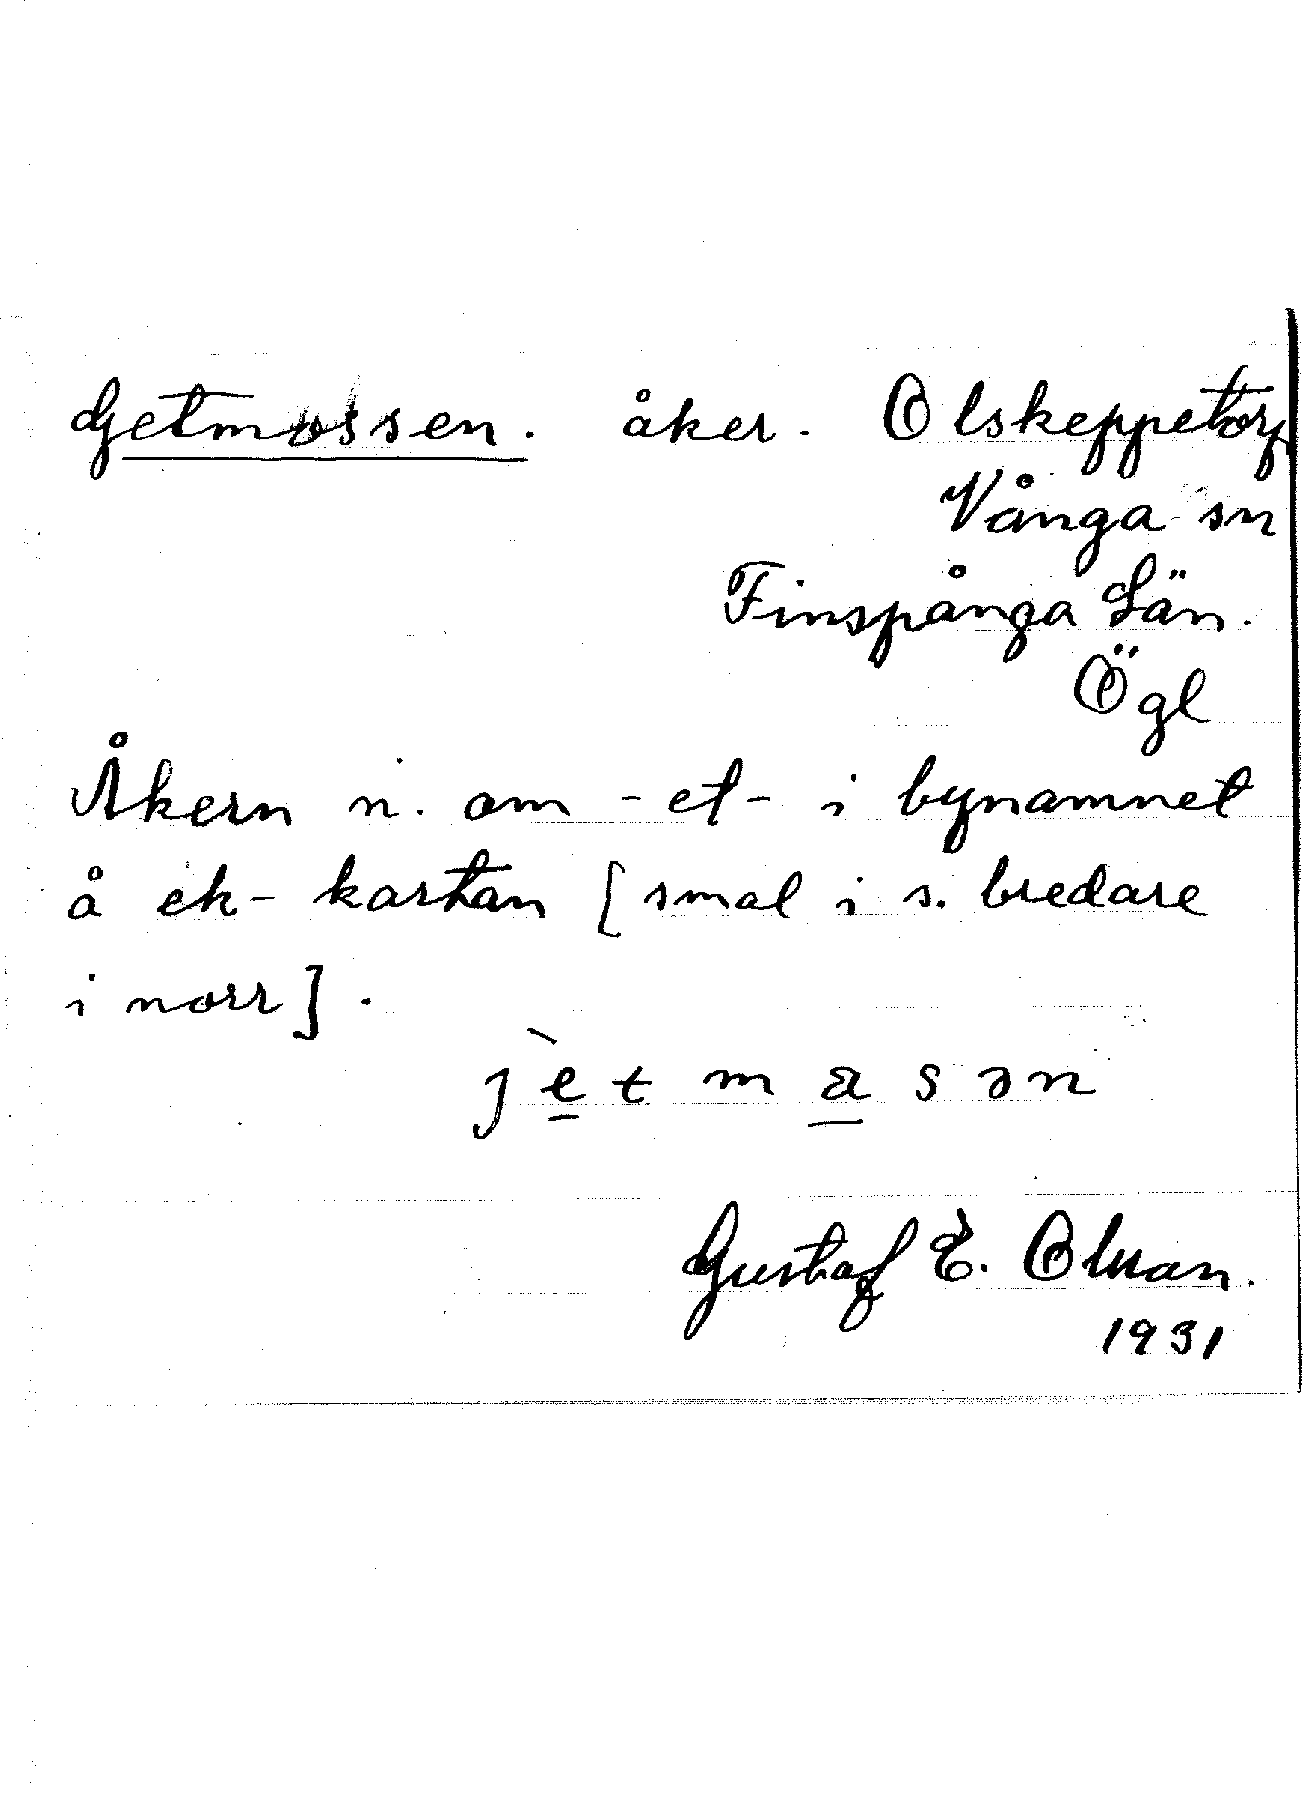 Getmossen. åker. Olskeppetorp
Vånga sn
Finspånga Län.
Ögl
Åkern n. om -et- i bynamnet
å ek-kartan [smal i s. bredare
i norr].
jètmasən
Gustaf E. Olman.
1931